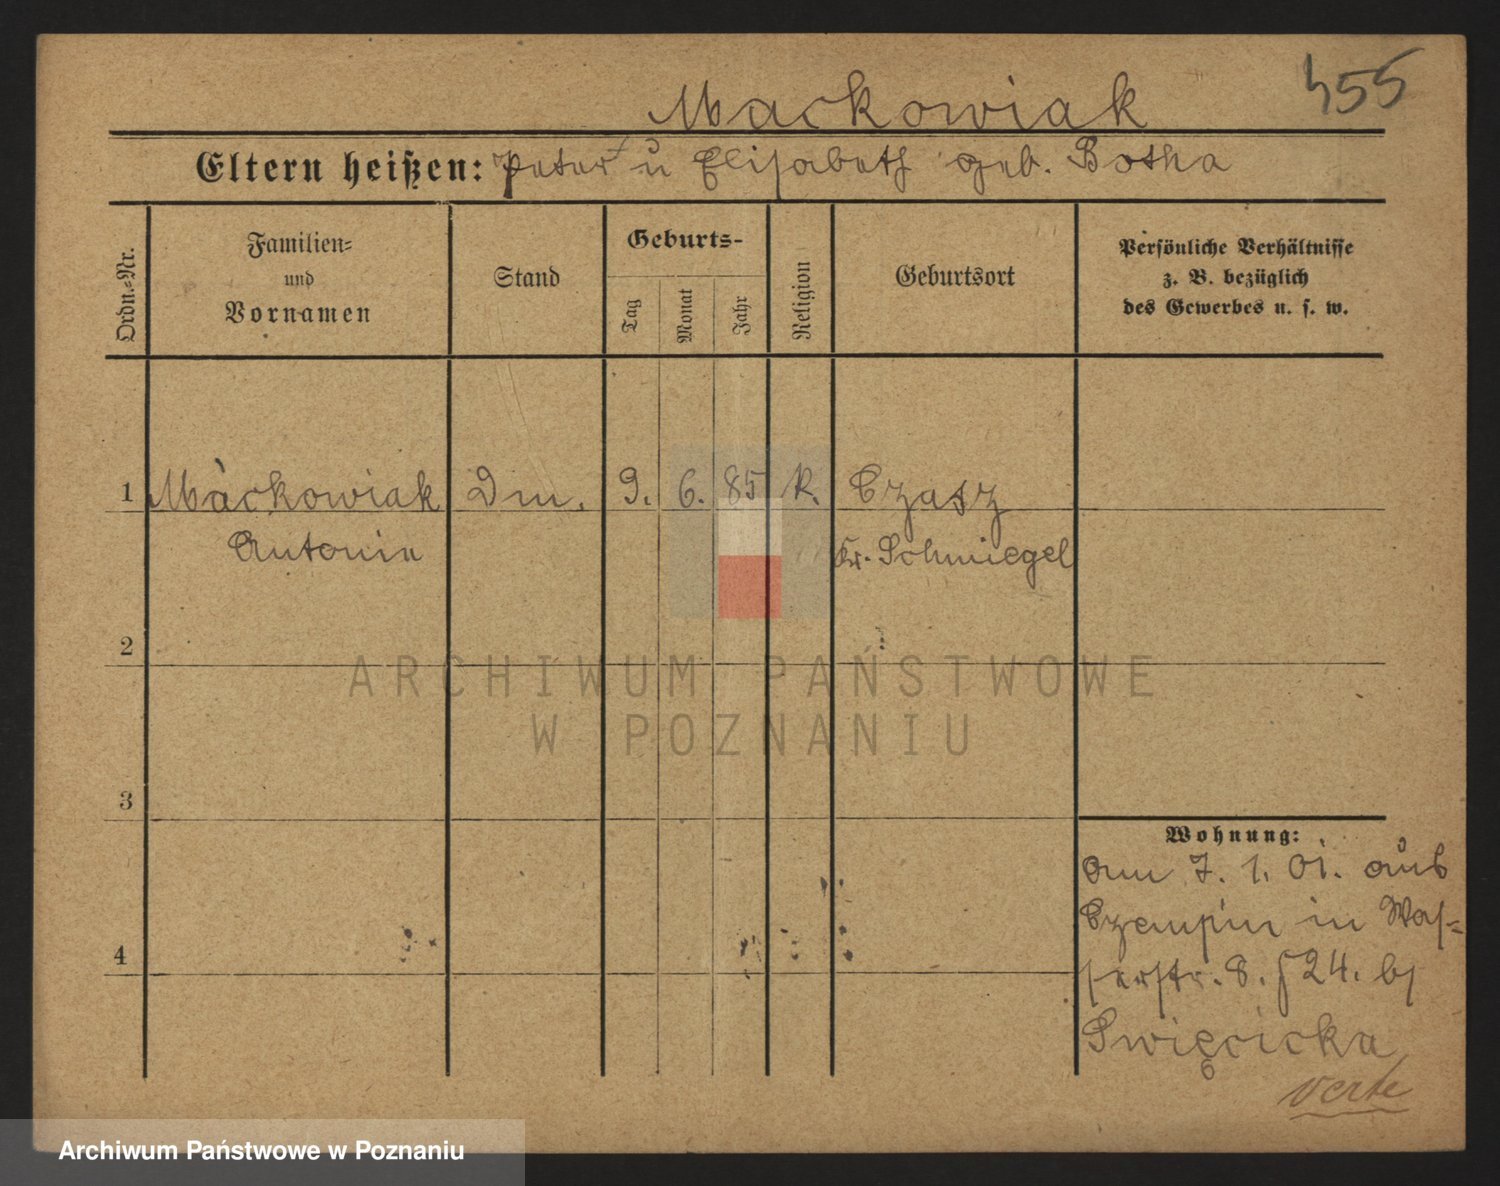 Mackowiak
455
Eltern heißen: Peter u Elisabeth geb. Botha
Ordn.-Nr.
Familien-
und
Vornamen
Stand
Geburts-
Tag
Monat
Jahr
Religion
Geburtsort
Persönliche Verhältnisse
z. B. bezüglich
des Gewerbes u. s. w.
1 Mackowiak Dm. 9. 6. 85 K. Czasz
Antonie Kr. Schmiegel
2
ARCHIWUM PAŃSTWOWE
W POZNANIU
3
Wohnung:
am 7. 1. 01. aus
Czempin in Was-
4
serstr. 8. 24. bei
Swięcicka
verte
Archiwum Państwowe w Poznaniu